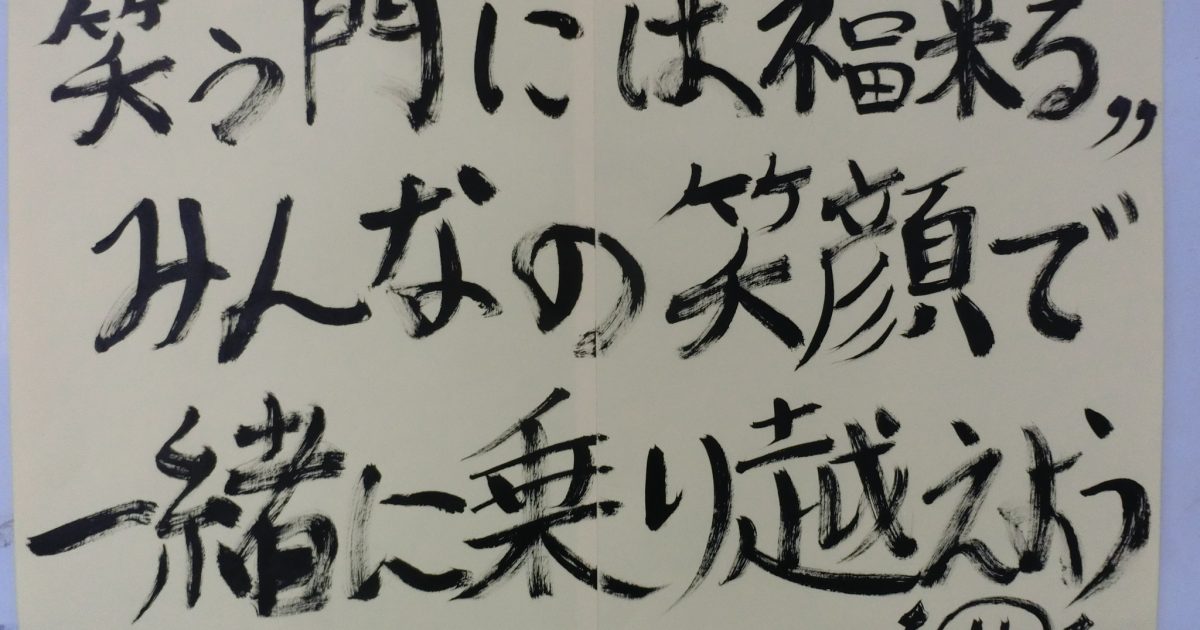 笑う門には福来る”
みんなの笑顔で
一緒に乗り越えよう